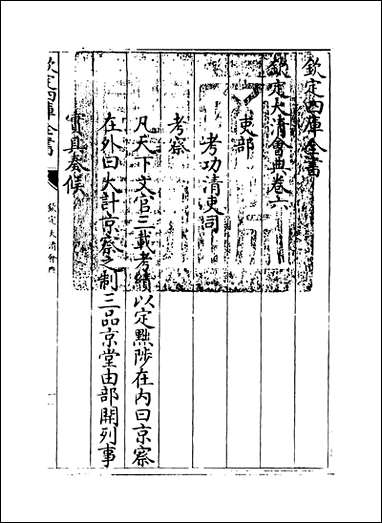 欽定四庫全書
欽定大清會典卷六
吏部
考功清吏司
考察
凡天下文官三載考績以定黜陟在內曰京察
在外曰大計京察之制三品京堂由部開列事
實具奏候
欽定四庫全書
欽定大清會典